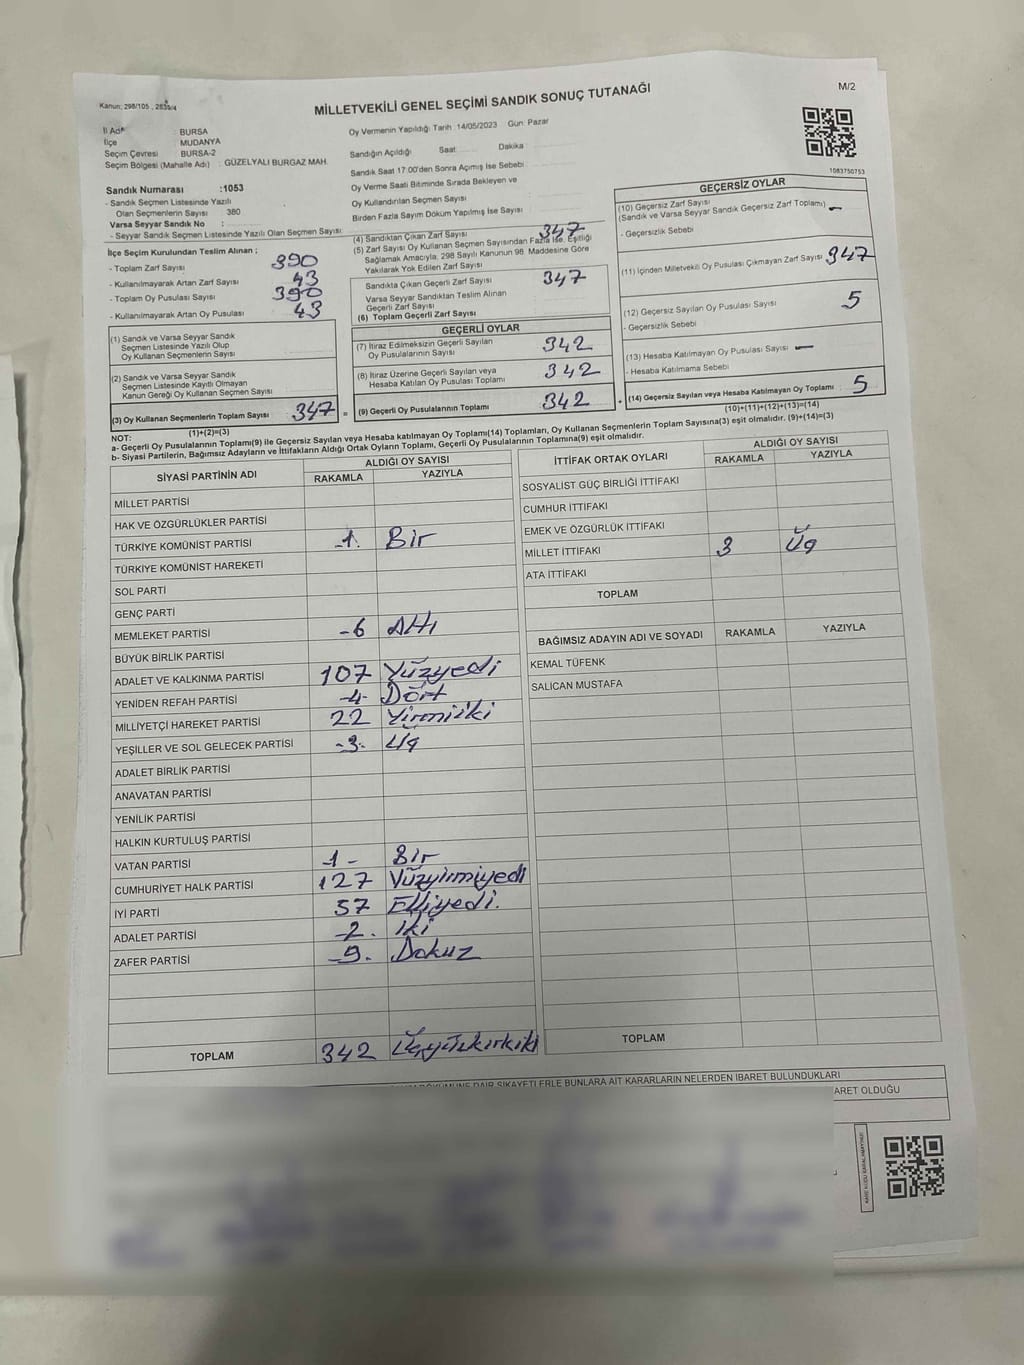 Kanun; 298/105 , 2839/4
MİLLETVEKİLİ GENEL SEÇİMİ SANDIK SONUÇ TUTANAĞI
M/2
İl Adı : BURSA
İlçe : MUDANYA
Seçim Çevresi : BURSA-2
Seçim Bölgesi (Mahalle Adı) : GÜZELYALI BURGAZ MAH.
Oy Vermenin Yapıldığı Tarih :14/05/2023 Gün: Pazar
Sandığın Açıldığı Saat: Dakika :
Sandık Saat 17:00'den Sonra Açımış İse Sebebi :
Oy Verme Saati Bitiminde Sırada Bekleyen ve
Oy Kullandırılan Seçmen Sayısı :
Birden Fazla Sayım Döküm Yapılmış İse Sayısı :
1083750753
Sandık Numarası :1053
- Sandık Seçmen Listesinde Yazılı
Olan Seçmenlerin Sayısı : 380
Varsa Seyyar Sandık No :
- Seyyar Sandık Seçmen Listesinde Yazılı Olan Seçmen Sayısı:
İlçe Seçim Kurulundan Teslim Alınan ;
- Toplam Zarf Sayısı : 390
- Kullanılmayarak Artan Zarf Sayısı : 43
- Toplam Oy Pusulası Sayısı : 390
- Kullanılmayarak Artan Oy Pusulası : 43
(1) Sandık ve Varsa Seyyar Sandık
Seçmen Listesinde Yazılı Olup
Oy Kullanan Seçmenlerin Sayısı
(2) Sandık ve Varsa Seyyar Sandık
Seçmen Listesinde Kayıtlı Olmayan
Kanun Gereği Oy Kullanan Seçmen Sayısı
(3) Oy Kullanan Seçmenlerin Toplam Sayısı : 347 =
(1)+(2)=(3)
(4) Sandıktan Çıkan Zarf Sayısı : 347
(5) Zarf Sayısı Oy Kullanan Seçmen Sayısından Fazla İse, Eşitliği
Sağlamak Amacıyla, 298 Sayılı Kanunun 98. Maddesine Göre
Yakılarak Yok Edilen Zarf Sayısı
Sandıkta Çıkan Geçerli Zarf Sayısı : 347
Varsa Seyyar Sandıktan Teslim Alınan
Geçerli Zarf Sayısı
(6) Toplam Geçerli Zarf Sayısı :
GEÇERLİ OYLAR
(7) İtiraz Edilmeksizin Geçerli Sayılan
Oy Pusulalarının Sayısı 342
(8) İtiraz Üzerine Geçerli Sayılan veya
Hesaba Katılan Oy Pusulası Toplamı 342
(9) Geçerli Oy Pusulalarının Toplamı 342 +
GEÇERSİZ OYLAR
(10) Geçersiz Zarf Sayısı
(Sandık ve Varsa Seyyar Sandık Geçersiz Zarf Toplamı) -
- Geçersizlik Sebebi
(11) İçinden Milletvekili Oy Pusulası Çıkmayan Zarf Sayısı 347
(12) Geçersiz Sayılan Oy Pusulası Sayısı 5
- Geçersizlik Sebebi
(13) Hesaba Katılmayan Oy Pusulası Sayısı -
- Hesaba Katılmama Sebebi
(14) Geçersiz Sayılan veya Hesaba Katılmayan Oy Toplamı 5
(10)+(11)+(12)+(13)=(14)
NOT:
a- Geçerli Oy Pusulalarının Toplamı(9) ile Geçersiz Sayılan veya Hesaba katılmayan Oy Toplamı(14) Toplamları, Oy Kullanan Seçmenlerin Toplam Sayısına(3) eşit olmalıdır. (9)+(14)=(3)
b- Siyasi Partilerin, Bağımsız Adayların ve İttifakların Aldığı Ortak Oyların Toplamı, Geçerli Oy Pusulalarının Toplamına(9) eşit olmalıdır.
SİYASİ PARTİNİN ADI ALDIĞI OY SAYISI
RAKAMLA YAZIYLA
MİLLET PARTİSİ
HAK VE ÖZGÜRLÜKLER PARTİSİ
TÜRKİYE KOMÜNİST PARTİSİ -1. Bir
TÜRKİYE KOMÜNİST HAREKETİ
SOL PARTİ
GENÇ PARTİ
MEMLEKET PARTİSİ -6 Altı
BÜYÜK BİRLİK PARTİSİ
ADALET VE KALKINMA PARTİSİ 107 Yüzyedi
YENİDEN REFAH PARTİSİ -4- Dört
MİLLİYETÇİ HAREKET PARTİSİ 22 Yirmiiki
YEŞİLLER VE SOL GELECEK PARTİSİ -3- Üç
ADALET BİRLİK PARTİSİ
ANAVATAN PARTİSİ
YENİLİK PARTİSİ
HALKIN KURTULUŞ PARTİSİ
VATAN PARTİSİ -1- Bir
CUMHURİYET HALK PARTİSİ 127 Yüzyirmiyedi
İYİ PARTİ 57 Elliyedi.
ADALET PARTİSİ -2. İki
ZAFER PARTİSİ -9. Dokuz
TOPLAM 342 Üçyüzkırkiki
İTTİFAK ORTAK OYLARI ALDIĞI OY SAYISI
RAKAMLA YAZIYLA
SOSYALIST GÜÇ BİRLİĞİ İTTİFAKI
CUMHUR İTTİFAKI
EMEK VE ÖZGÜRLÜK İTTİFAKI
MİLLET İTTİFAKI 3 Üç
ATA İTTİFAKI
TOPLAM
BAĞIMSIZ ADAYIN ADI VE SOYADI RAKAMLA YAZIYLA
KEMAL TÜFENK
SALİCAN MUSTAFA
TOPLAM
DÖKÜMÜNE DAİR ŞİKAYETLERLE BUNLARA AİT KARARLARIN NELERDEN İBARET BULUNDUKLARI
ARET OLDUĞU